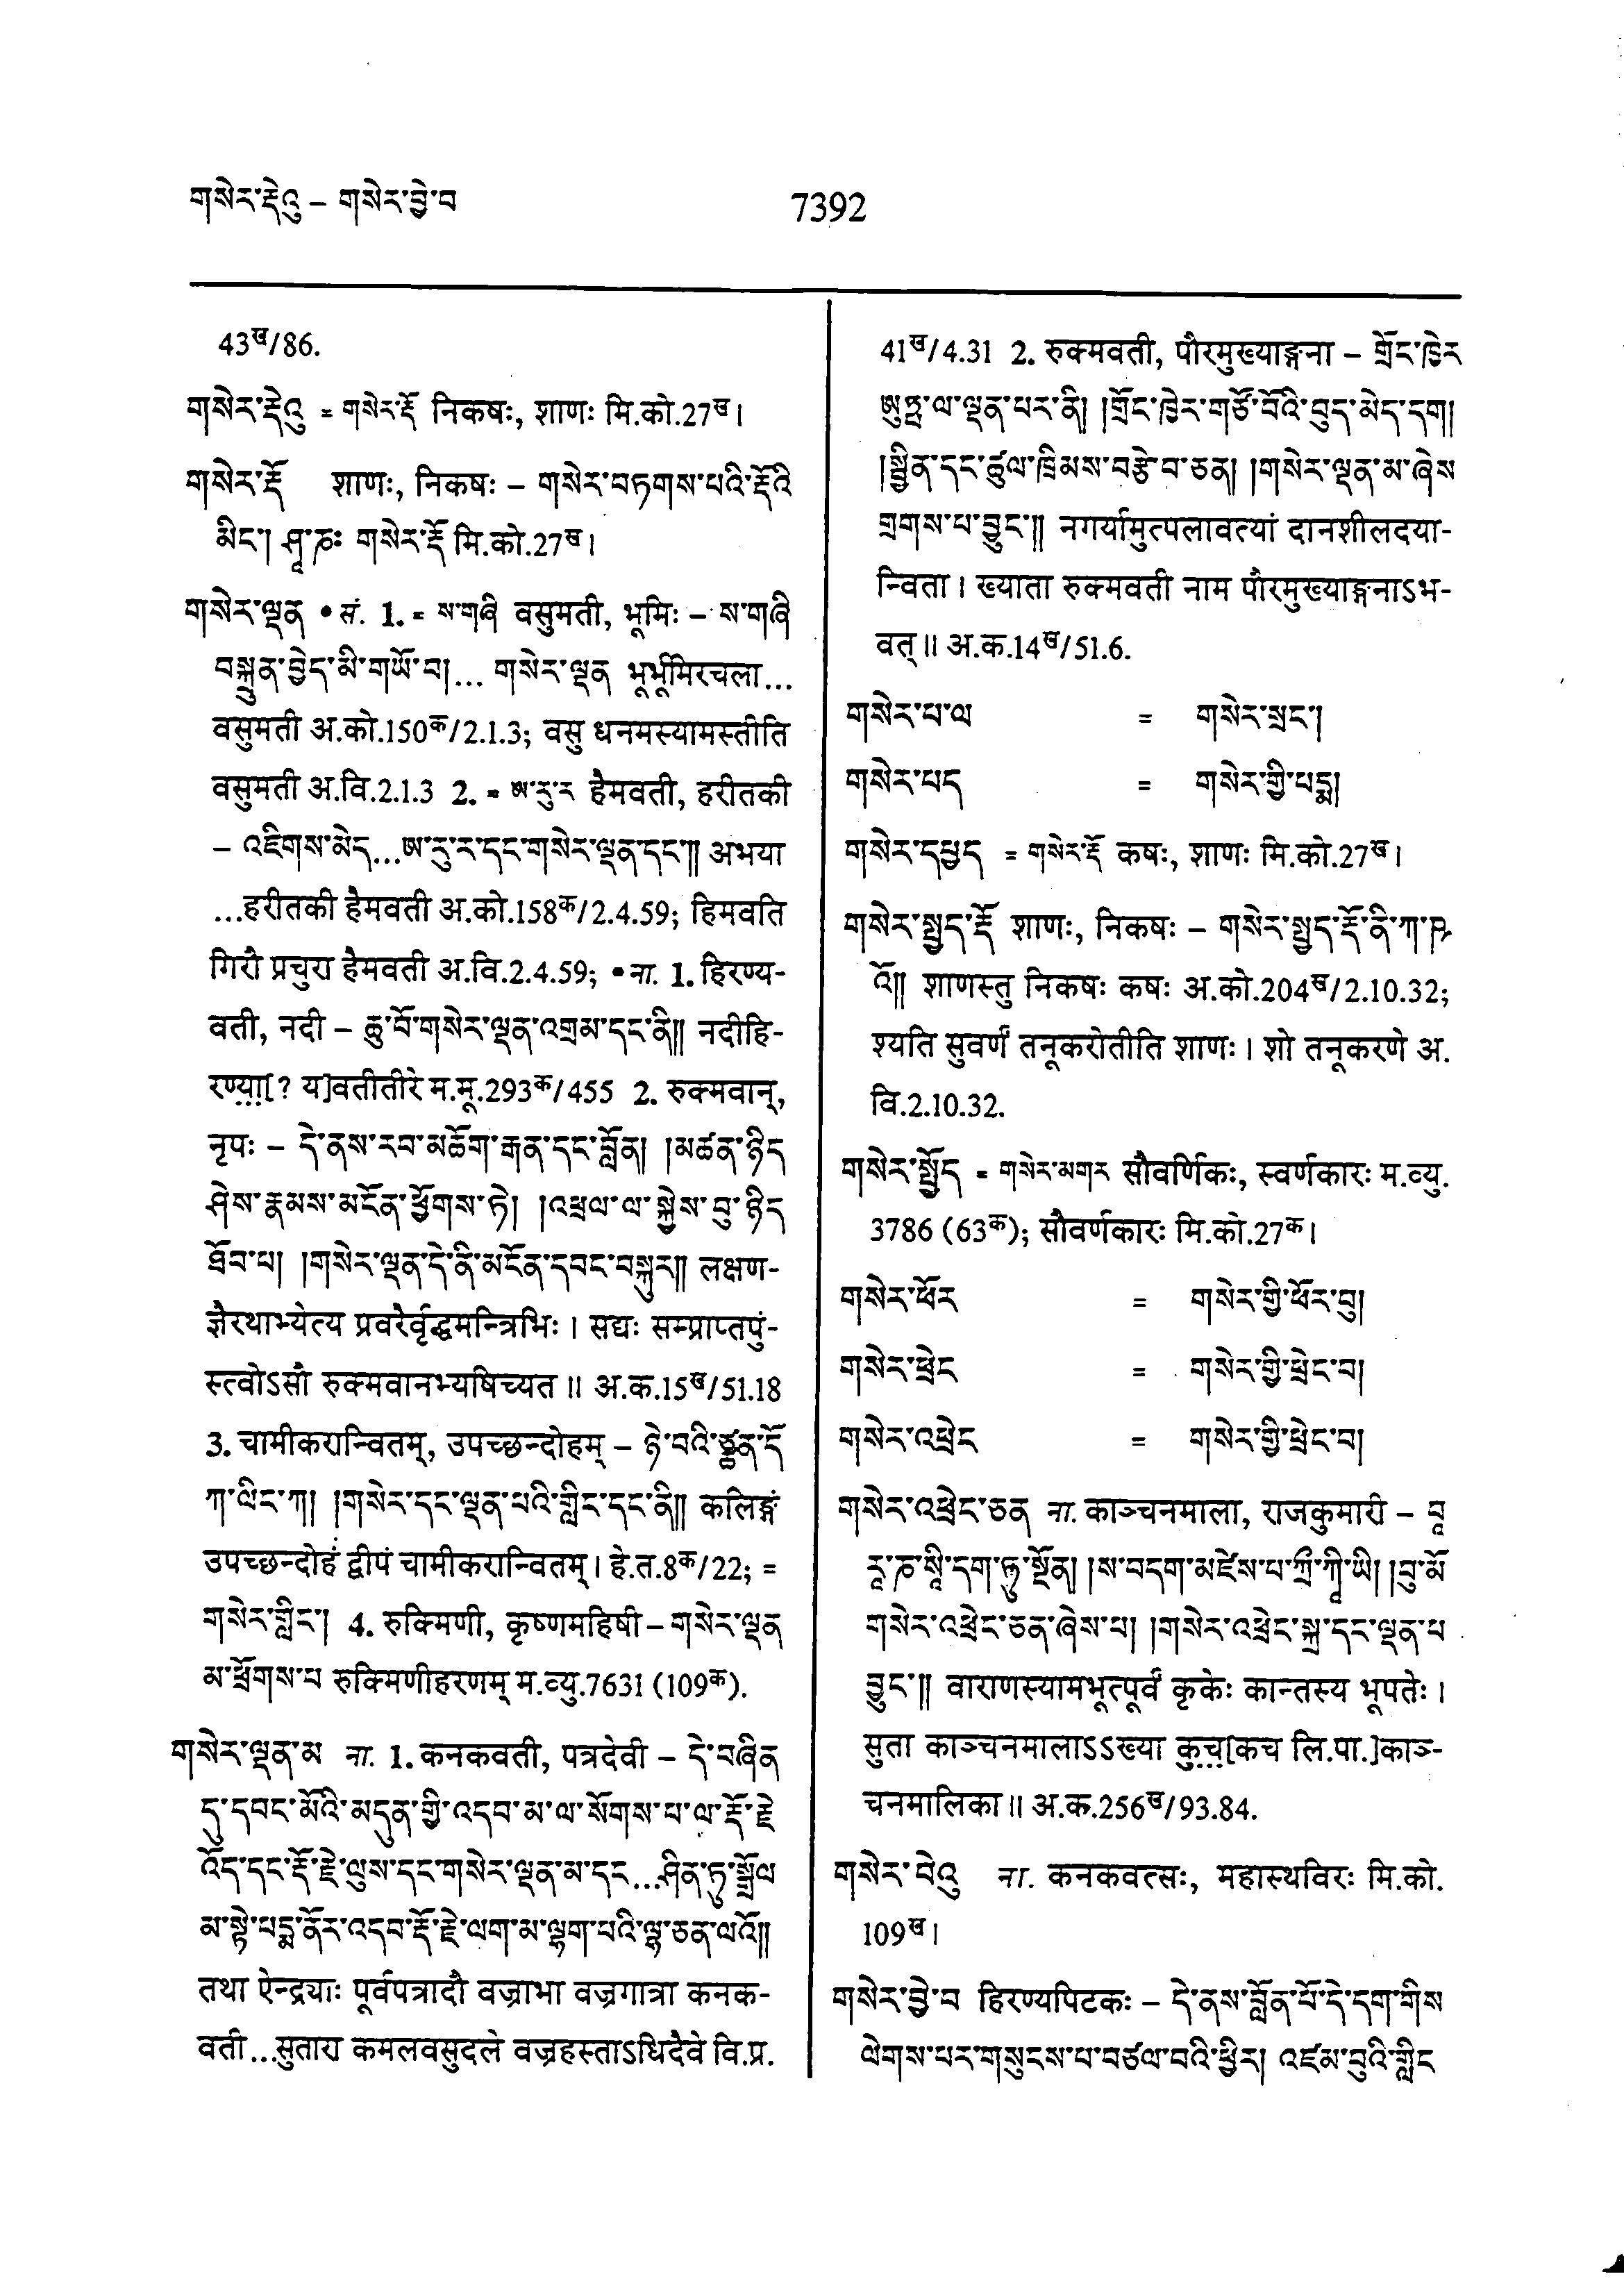 གསེར་རྡེའུ – གསེར་བྱེ་བ
7392
43ख/86.
གསེར་རྡེའུ = གསེར་རྡོ निकषः, शाणः मि.को.27ख।
གསེར་རྡོ शाणः, निकषः – གསེར་བཏགས་པའི་རྡོའི
མིང་། ཤཱ་ཎཿ གསེར་རྡོ मि.को.27ख।
གསེར་ལྡན • सं. 1. = ས་གཞི वसुमती, भूमिः – ས་གཞི
བསྐྲུན་བྱེད་མི་གཡོ་བ།... གསེར་ལྡན भूर्भूमिरचला...
वसुमती अ.को.150क/2.1.3; वसु धनमस्यामस्तीति
वसुमती अ.वि.2.1.3 2. = ཨ་རུ་ར हैमवती, हरीतकी
– འཇིགས་མེད...ཨ་རུ་ར་དང་གསེར་ལྡན་དང་༎ अभया
...हरीतकी हैमवती अ.को.158क/2.4.59; हिमवति
गिरौ प्रचुरा हैमवती अ.वि.2.4.59; • ना. 1. हिरण्य-
वती, नदी – ཆུ་བོ་གསེར་ལྡན་འགྲམ་དང་ནི༎ नदीहि-
रण्या[? य]वतीतीरे म.मू.293क/455 2. रुक्मवान्,
नृपः – དེ་ནས་རབ་མཆོག་རྒན་དང་བློན། །མཚན་ཉིད
ཤེས་རྣམས་མངོན་ཕྱོགས་ཏེ། །འཕྲལ་ལ་སྐྱེས་བུ་ཉིད
ཐོབ་པ། །གསེར་ལྡན་དེ་ནི་མངོན་དབང་བསྐུར༎ लक्षण-
ज्ञैरथाभ्येत्य प्रवरैर्वृद्धमन्त्रिभिः। सद्यः सम्प्राप्तपुं-
स्त्वोऽसौ रुक्मवानभ्यषिच्यत॥ अ.क.15ख/51.18
3. चामीकरान्वितम्, उपच्छन्दोहम् – ཉེ་བའི་ཙྪན་དོ
ཀ་ལིང་ཀ། །གསེར་དང་ལྡན་པའི་གླིང་དང་ནི༎ कलिङ्गं
उपच्छन्दोहं द्वीपं चामीकरान्वितम्। हे.त.8क/22; =
གསེར་གླིང་། 4. रुक्मिणी, कृष्णमहिषी – གསེར་ལྡན
མ་ཕྲོགས་པ रुक्मिणीहरणम् म.व्यु.7631 (109क).
གསེར་ལྡན་མ ना. 1. कनकवती, पत्रदेवी – དེ་བཞིན
དུ་དབང་མོའི་མདུན་གྱི་འདབ་མ་ལ་སོགས་པ་ལ་རྡོ་རྗེ
འོད་དང་རྡོ་རྗེ་ལུས་དང་གསེར་ལྡན་མ་དང...ཤིན་ཏུ་སྒྲོལ
མ་སྟེ་པདྨ་ནོར་འདབ་རྡོ་རྗེ་ལག་མ་ལྷག་པའི་ལྷ་ཅན་ལའོ༎
तथा ऐन्द्र्याः पूर्वपत्रादौ वज्राभा वज्रगात्रा कनक-
वती...सुतारा कमलवसुदले वज्रहस्ताऽधिदैवे वि.प्र.
41ख/4.31 2. रुक्मवती, पौरमुख्याङ्गना – གྲོང་ཁྱེར
ཨུཏྤ་ལ་ལྡན་པར་ནི། །གྲོང་ཁྱེར་གཙོ་བོའི་བུད་མེད་དག།
།སྦྱིན་དང་ཚུལ་ཁྲིམས་བརྩེ་བ་ཅན། །གསེར་ལྡན་མ་ཞེས
གྲགས་པ་བྱུང་༎ नगर्यामुत्पलावत्यां दानशीलदया-
न्विता। ख्याता रुक्मवती नाम पौरमुख्याङ्गनाऽभ-
वत्॥ अ.क.14ख/51.6.
གསེར་པ་ལ = གསེར་སྲང་།
གསེར་པད = གསེར་གྱི་པདྨ།
གསེར་དཔྱད = གསེར་རྡོ कषः, शाणः मि.को.27ख।
གསེར་སྤྱད་རྡོ शाणः, निकषः – གསེར་སྤྱད་རྡོ་ནི་ཀ་ཥ
འོ༎ शाणस्तु निकषः कषः अ.को.204ख/2.10.32;
श्यति सुवर्णं तनूकरोतीति शाणः। शो तनूकरणे अ.
वि.2.10.32.
གསེར་སྤྱོད = གསེར་མགར सौवर्णिकः, स्वर्णकारः म.व्यु.
3786 (63क); सौवर्णकारः मि.को.27क।
གསེར་ཕོར = གསེར་གྱི་ཕོར་བུ།
གསེར་ཕྲེང = གསེར་གྱི་ཕྲེང་བ།
གསེར་འཕྲེང = གསེར་གྱི་ཕྲེང་བ།
གསེར་འཕྲེང་ཅན ना. काञ्चनमाला, राजकुमारी – བཱ
རཱ་ཎ་སཱི་དག་ཏུ་སྔོན། །ས་བདག་མཛེས་པ་ཀྲྀ་ཀཱི་ཡི། །བུ་མོ
གསེར་འཕྲེང་ཅན་ཞེས་པ། །གསེར་འཕྲེང་སྐྲ་དང་ལྡན་པ
བྱུང་༎ वाराणस्यामभूत्पूर्वं कृकेः कान्तस्य भूपतेः।
सुता काञ्चनमालाऽऽख्या कुच[कच लि.पा.]काञ्-
चनमालिका॥ अ.क.256ख/93.84.
གསེར་བེའུ ना. कनकवत्सः, महास्थविरः मि.को.
109ख।
གསེར་བྱེ་བ हिरण्यपिटकः – དེ་ནས་བློན་པོ་དེ་དག་གིས
ལེགས་པར་གསུངས་པ་བཙལ་བའི་ཕྱིར། འཛམ་བུའི་གླིང